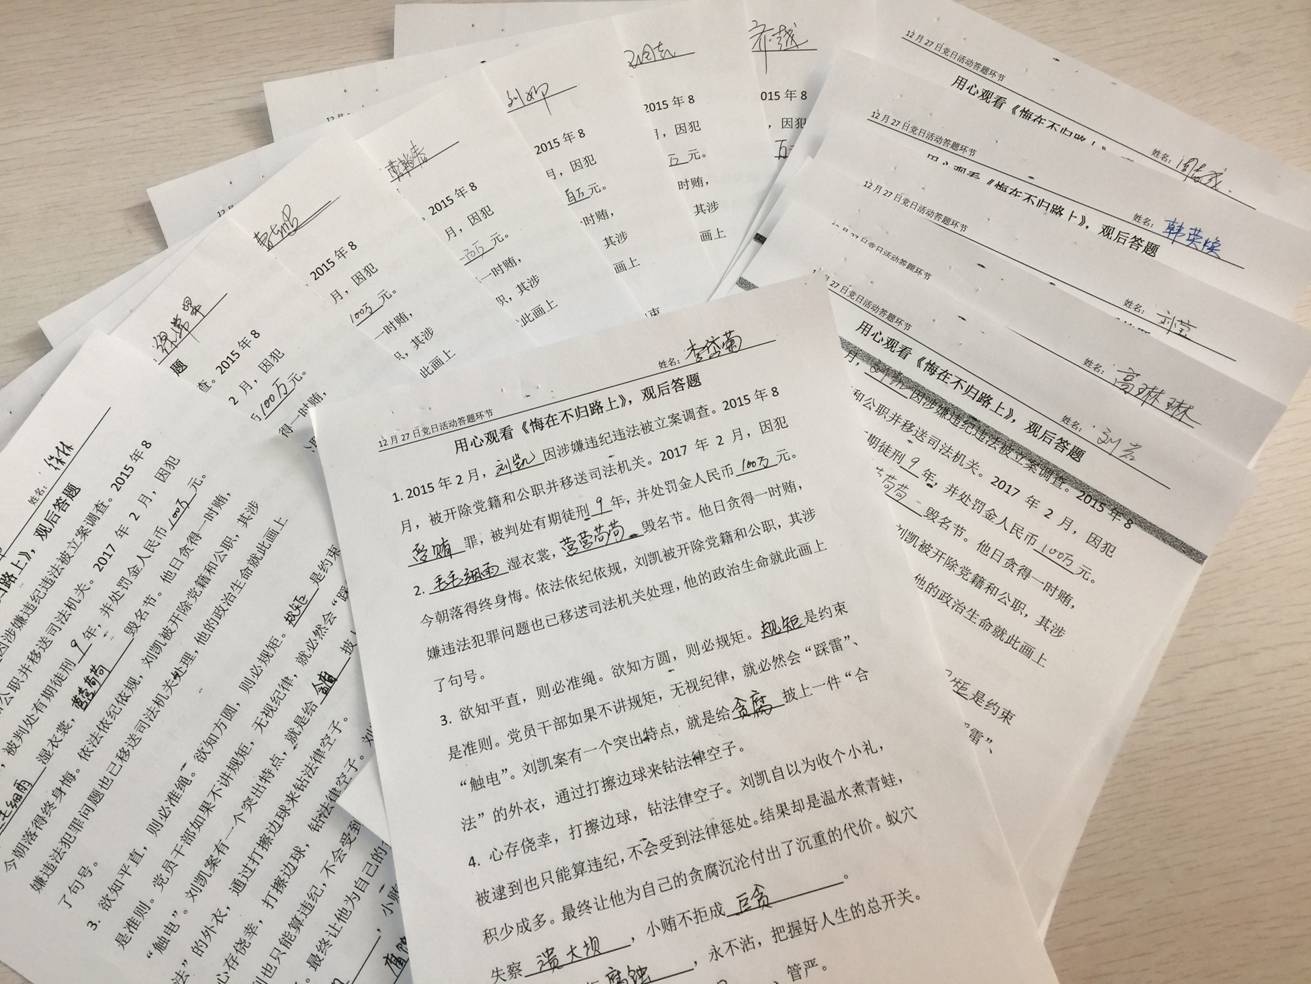 12月27日党日活动答题环节
姓名：李岱菊
用心观看《悔在不归路上》，观后答题
1. 2015年2月，刘凯因涉嫌违纪违法被立案调查。2015年8
月，被开除党籍和公职并移送司法机关。2017年2月，因犯
受贿罪，被判处有期徒刑9年，并处罚金人民币100万元。
2. 毛毛细雨湿衣裳，蝇营苟苟毁名节。他日贪得一时贿，
今朝落得终身悔。依法依纪依规，刘凯被开除党籍和公职，其涉
嫌违法犯罪问题也已移送司法机关处理，他的政治生命就此画上
了句号。
3. 欲知平直，则必准绳。欲知方圆，则必规矩。规矩是约束
是准则。党员干部如果不讲规矩，无视纪律，就必然会“踩雷”、
“触电”。刘凯案有一个突出特点，就是给贪腐披上一件“合
法”的外衣，通过打擦边球来钻法律空子。
4. 心存侥幸，打擦边球，钻法律空子。刘凯自以为收个小礼，
被逮到也只能算违纪，不会受到法律惩处。结果却是温水煮青蛙，
积少成多。最终让他为自己的贪腐沉沦付出了沉重的代价。蚁穴
失察溃大坝，小贿不拒成巨贪。
腐蚀，永不沾，把握好人生的总开关。
管严。
姓名：徐林
归路上》，观后答题
因涉嫌违纪违法被立案调查。2015年8
公职并移送司法机关。2017年2月，因犯
，被判处有期徒刑9年，并处罚金人民币100万元。
毛细雨湿衣裳，营营苟苟毁名节。他日贪得一时贿，
今朝落得终身悔。依法依纪依规，刘凯被开除党籍和公职，其涉
嫌违法犯罪问题也已移送司法机关处理，他的政治生命就此画上
了句号。
3. 欲知平直，则必准绳。欲知方圆，则必规矩。规矩是约束
是准则。党员干部如果不讲规矩，无视纪律，就必然会“踩
“触电”。刘凯案有一个突出特点，就是给贪腐披上
法”的外衣，通过打擦边球来钻法律空子。
心存侥幸，打擦边球，钻法律空子。刘
到也只能算违纪，不会受到
。最终让他为自己的
，小贿
题
查。2015年8
2月，因犯
100万元。
得一时贿，
2015年8
月，因犯
100万元。
一时贿，
职，其涉
此画上
2015年8
月，因犯
一百万元。
一时贿，
职，其涉
此画上
2015年8
月，因犯
百万元。
时贿，
其涉
画上
2015年8
月，因犯
万元。
时贿，
其涉
画上
乔越
015年8
，因犯
万
12月27日党日活动答题环节
用心观看《悔在不归路上》
姓名：
12月27日党日活动答题环节
用心观看《悔在不归路上》，观后答题
姓名：韩英焕
12月27日党日活动答题环节
姓名：刘莹
12月27日党日活动答题环节
姓名：高琳琳
月27日党日活动答题环节
姓名：刘芳
用心观看《悔在不归路上》，观后答题
月，刘凯因涉嫌违纪违法被立案调查。2015年8
和公职并移送司法机关。2017年2月，因犯
期徒刑9年，并处罚金人民币100万元。
苟苟毁名节。他日贪得一时贿，
刘凯被开除党籍和公职，其涉
他的政治生命就此画上
规矩是约束
雷”、